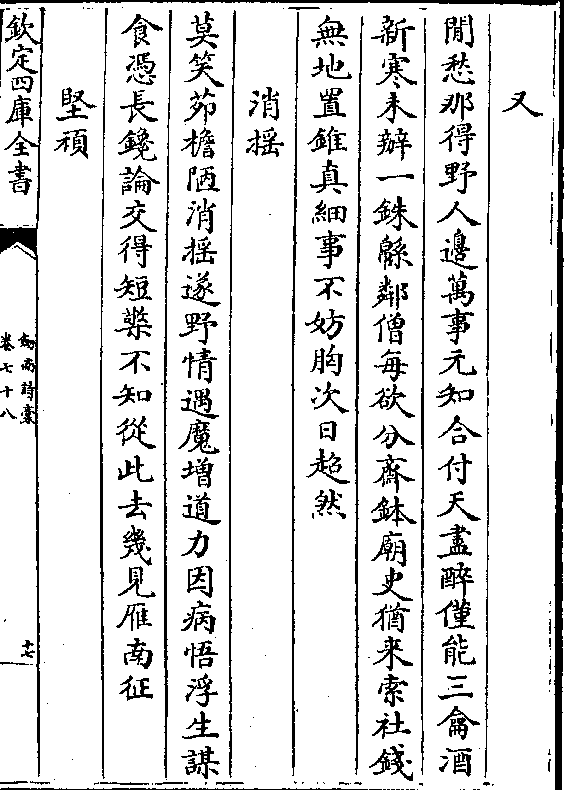 又
閒愁那得野人邊萬事元知合付天盡醉僅能三龠酒
新寒未辦一銖緜鄰僧每欲分齋鉢廟史猶來索社錢
無地置錐真細事不妨胸次日超然
消揺
莫笑茆檐陋消揺遂野情遇魔增道力因病悟浮生謀
食憑長鑱論交得短檠不知從此去幾見雁南征
堅頑
欽定四庫全書
劍南詩稾
卷七十八
十七